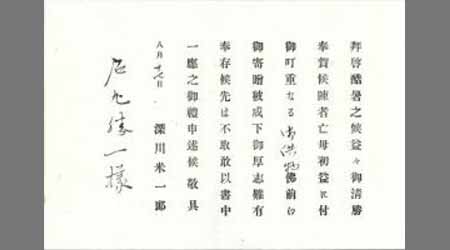 拜啓酷暑之候益々御清勝
奉賀候陳者亡母初盆に付
御叮重なる御供物佛前に
御寄贈被成下御厚志難有
奉存候先は不取敢以書中
一應之御禮申述候 敬具
八月十七日 深川米一郎
石丸勝一様